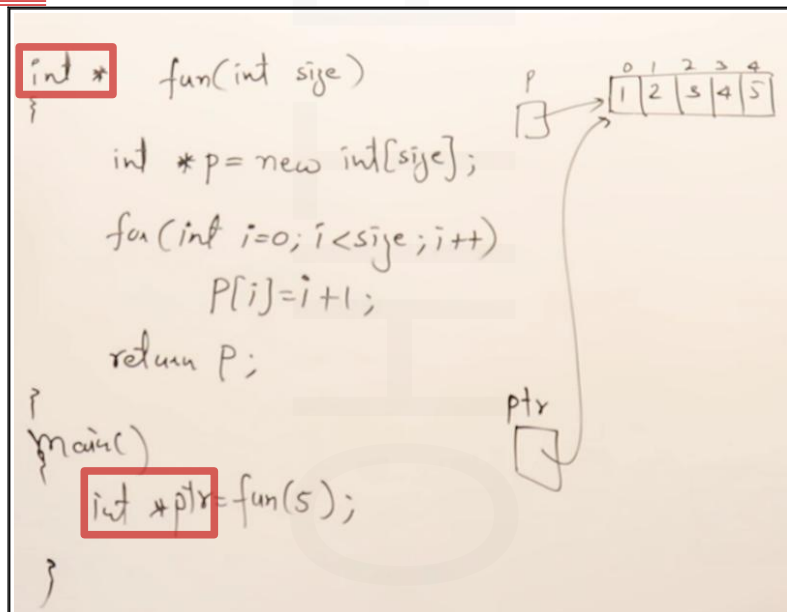 int * fun(int size)
{
int *p = new int[size];
for(int i=0; i<size; i++)
P[i]=i+1;
return P;
}
main()
{
int *ptr=fun(5);
}
P
0 1 2 3 4
1 2 3 4 5
ptr